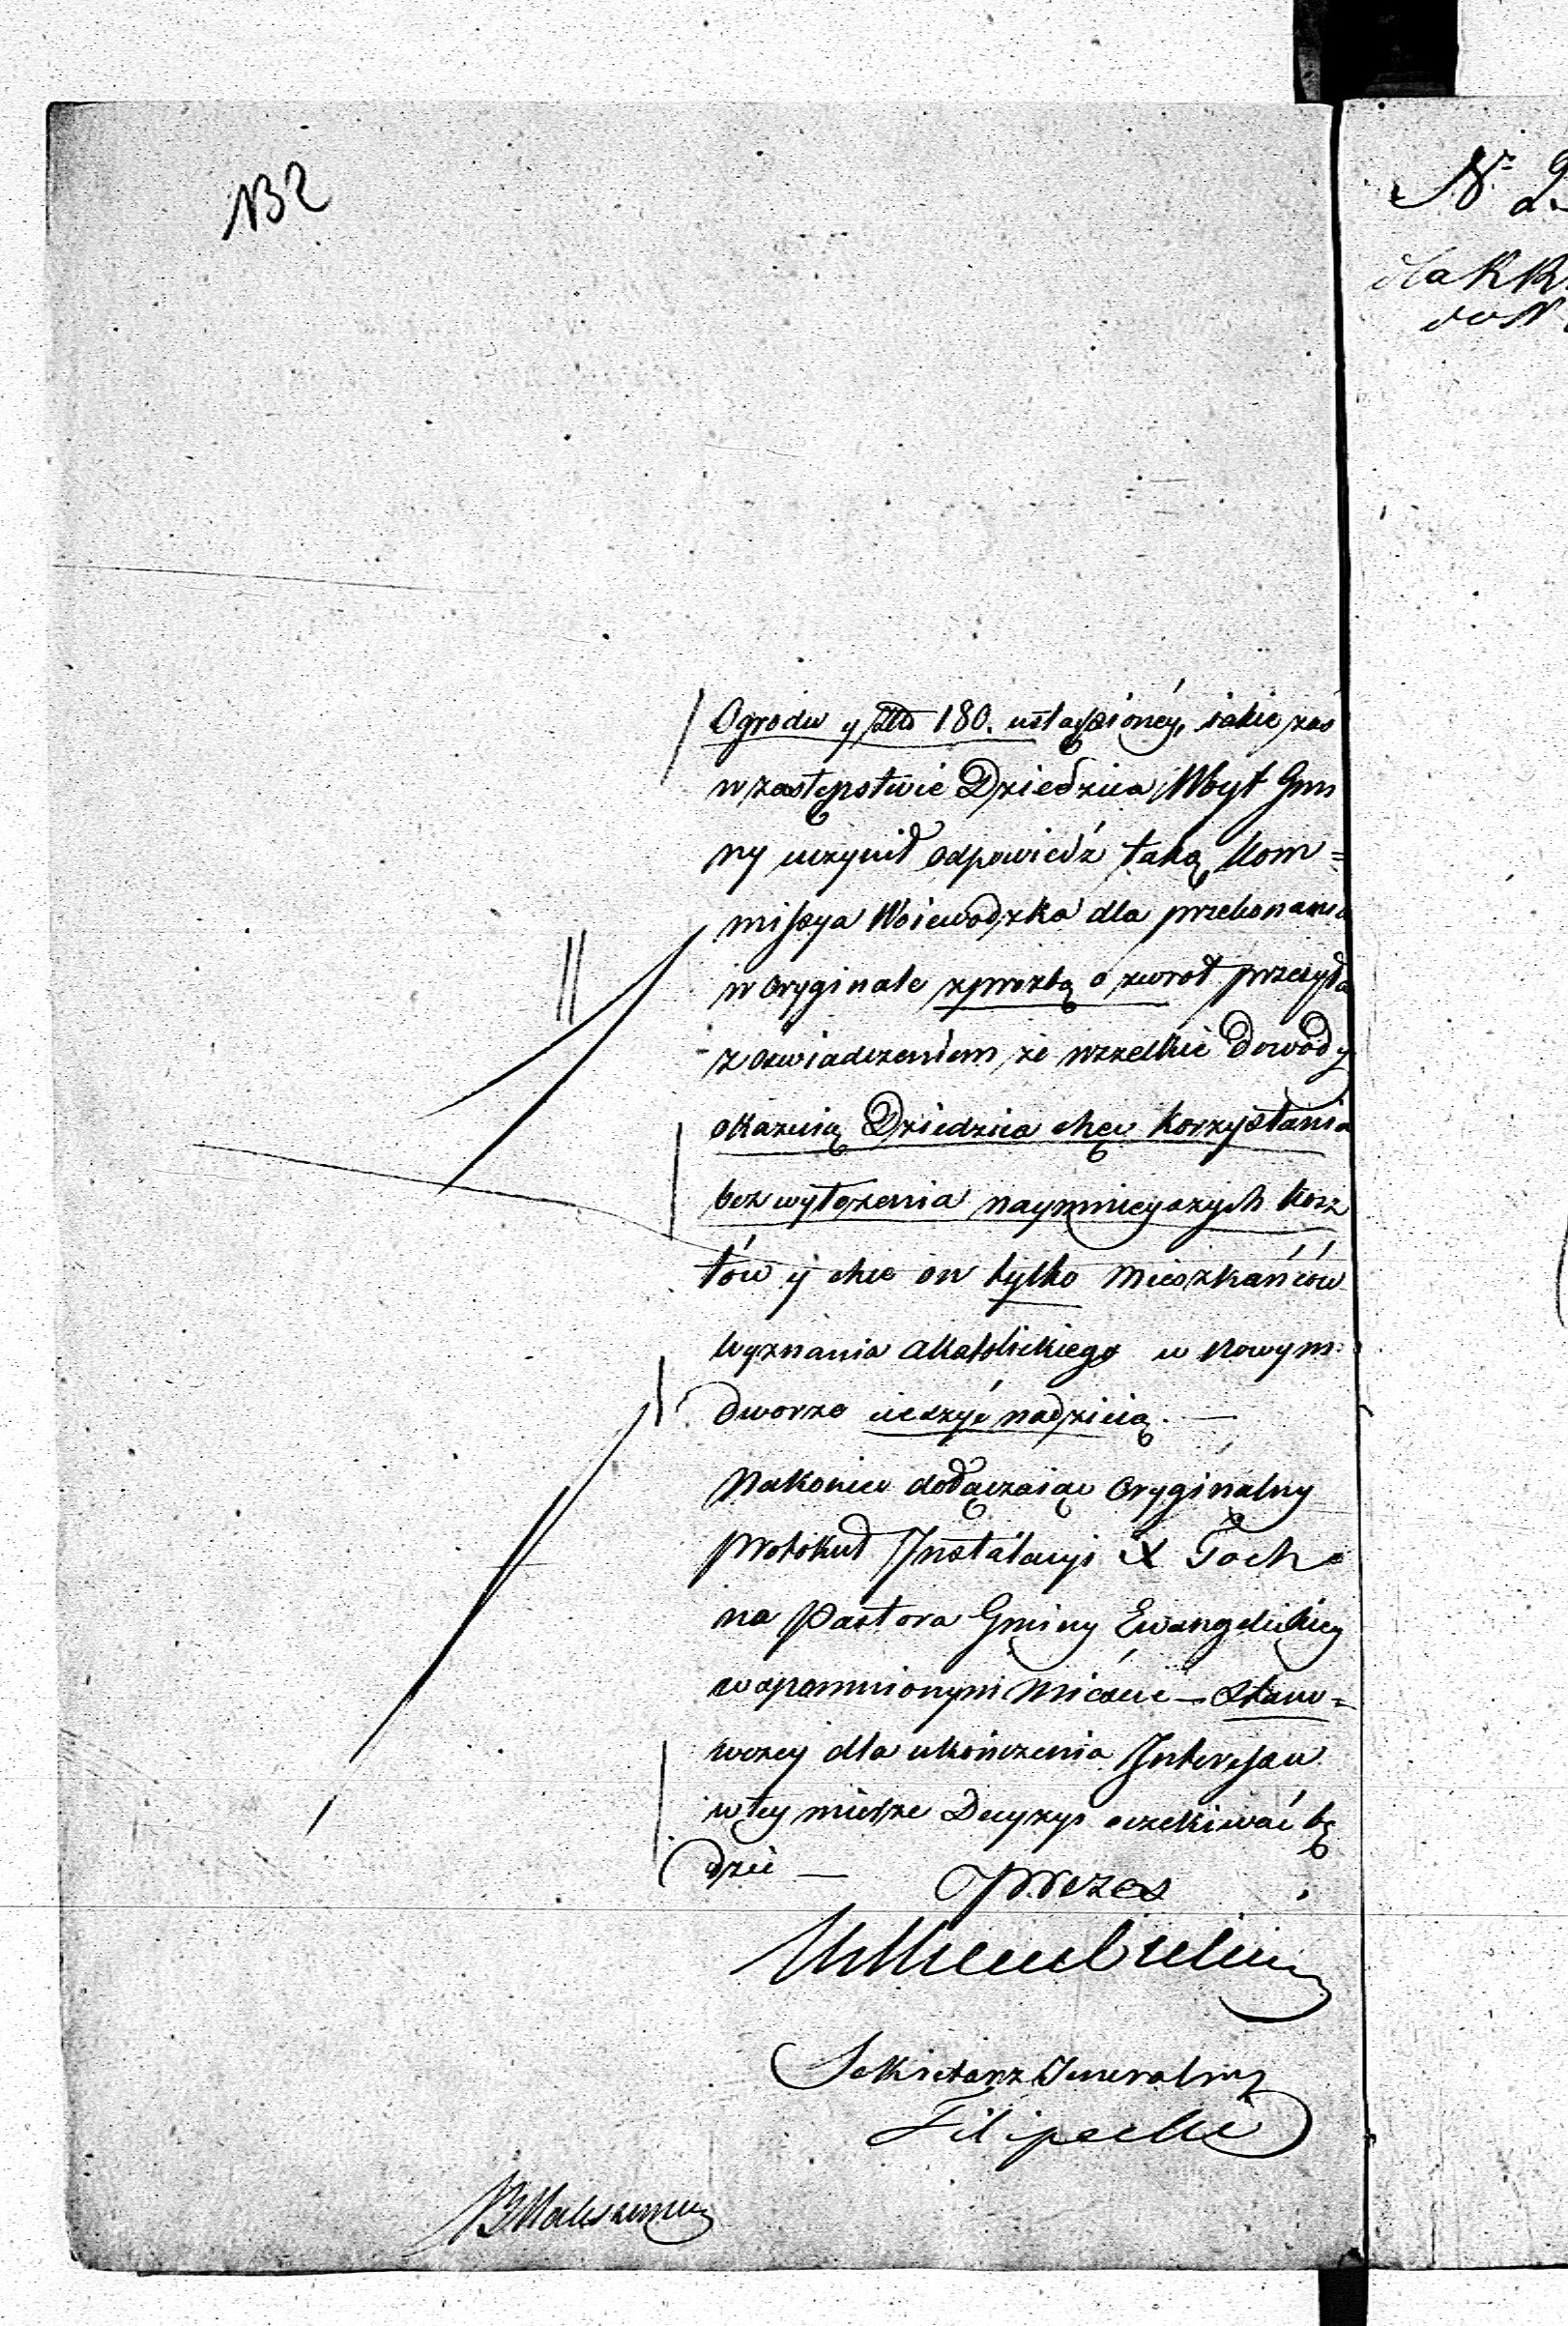 132
Ogrodu y Złto 180. ustąpionéy, iakie zaś
w zastępstwie Dziedzica Woyt Gmi
ny uczynił odpowiedź taką Kom=
missya Woiewodzka dla przekonania
w oryginale z prozbą o zwrot przesyła
z oswiadczeniem że wszelkie dowody
okazuią Dziedzica chęć korzystania
bez wyłożenia naymnieyszych kosz
tów y chce on tylko Mieszkańców
wyznania akatolickiego w Nowym
dworze cieszyć nadzieią. —
Nakoniec dołączaiąc Oryginalny
protokuł Instalacyi X
na Pastora Gminy Ewangelickiey
wspomnionym Mieście — Stano=
wczey dla ukończenia Interessu
w tey mierze Decyzyi oczekiwać bę
dzie —
Prezes
Sekretarz Jeneralny
Filipecki
Nr